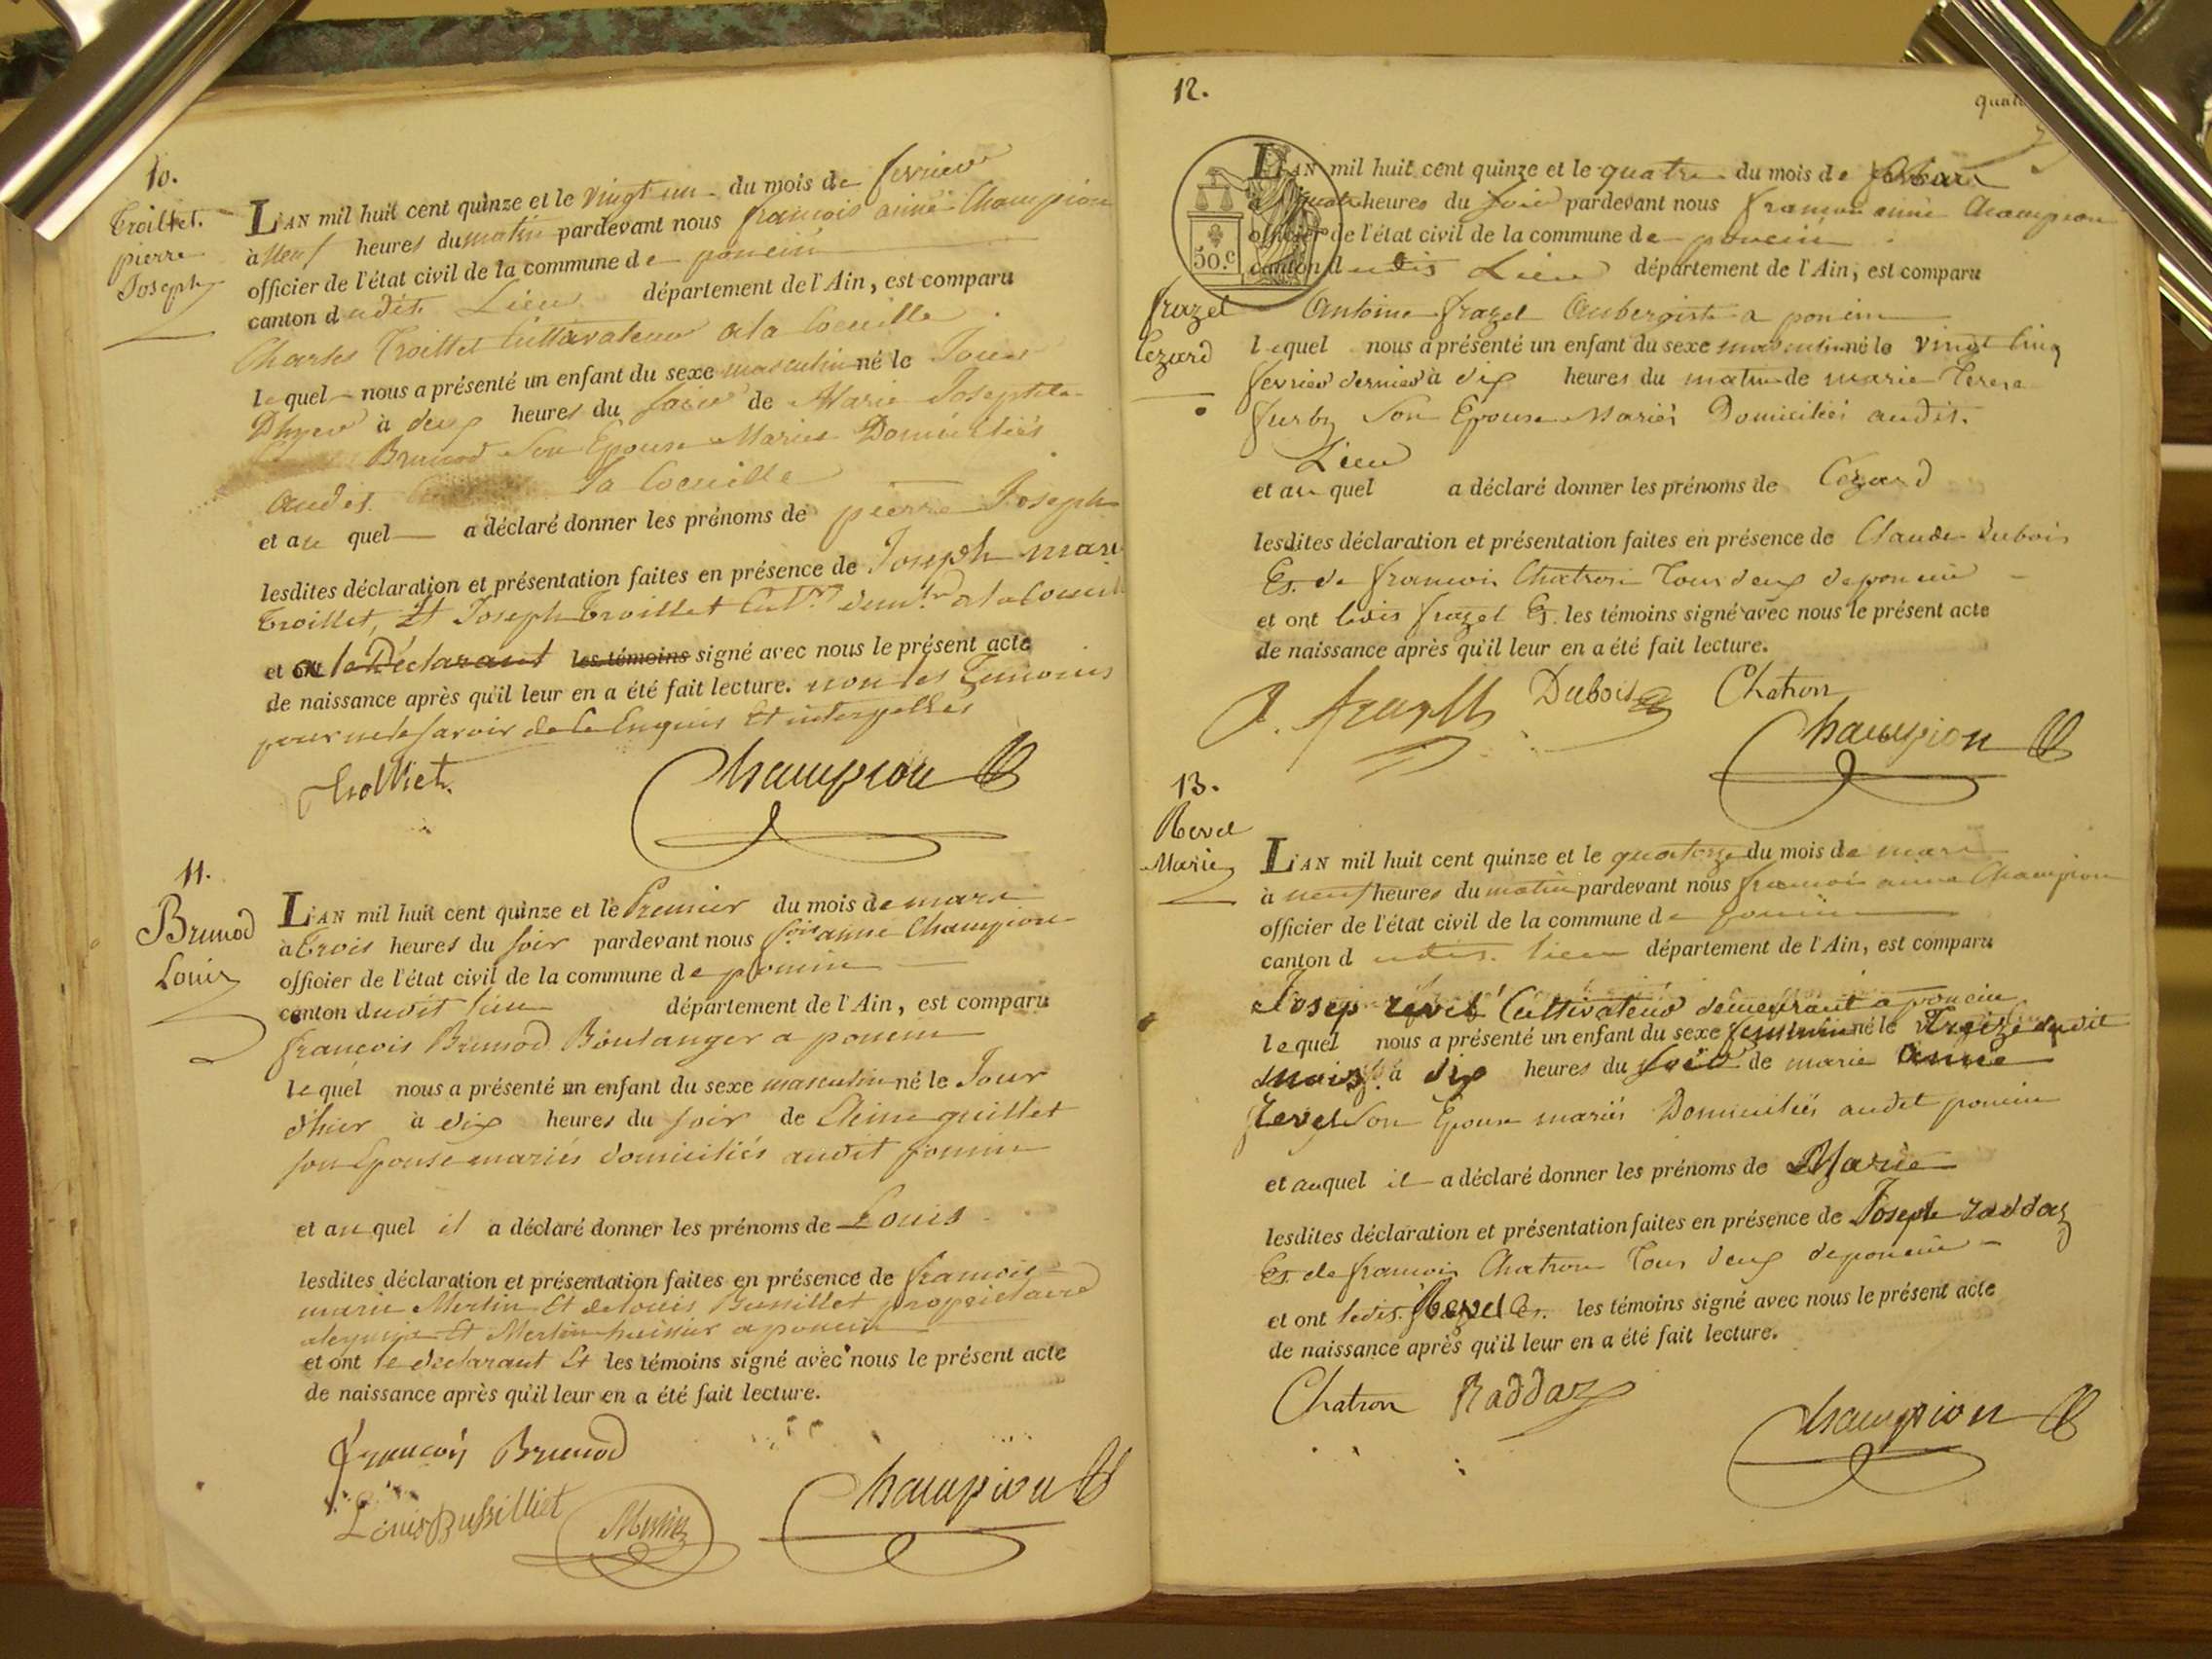 10.
Troillet.
pierre
Joseph
L'AN mil huit cent quinze et le vingt un du mois de fevrier
à neuf heures du matin pardevant nous francois anné Champion
officier de l'état civil de la commune de poncin
canton dudit Lieu département de l'Ain, est comparu
Charles Troillet Cultivateur a la Coeuille
lequel nous a présenté un enfant du sexe masculin né le Jour
D'hyer à deux heures du soir de Marie Josephte
Brunod son Epouse Mariés Domiciliés
audit la Coeuille
et au quel a déclaré donner les prénoms de pierre Joseph
lesdites déclaration et présentation faites en présence de Joseph marie
Troillet, Et Joseph Troillet
et le Déclarant les témoins signé avec nous le présent acte
de naissance après qu'il leur en a été fait lecture. non les Temoins
pour ne le savoir de ce Enquis Et interpellés
Trolliet. Champion
11.
Brunod
Louis
L'AN mil huit cent quinze et le Premier du mois de mars
à Trois heures du soir pardevant nous fois anné Champion
officier de l'état civil de la commune de poncin
canton dudit lieu département de l'Ain, est comparu
françois Brunod Boulanger a poncin
lequel nous a présenté un enfant du sexe masculin né le Jour
d'hier à dix heures du soir de guillet
son Epouse mariés domiciliés audit poncin
et au quel il a déclaré donner les prénoms de Louis
lesdites déclaration et présentation faites en présence de francois
marie Merlin Et de Louis Bussillet propriétaire
Et Merlin huissier a poncin
et ont le déclarant Et les témoins signé avec nous le présent acte
de naissance après qu'il leur en a été fait lecture.
françois Brunod
Louis Bussilliet Merlin Champion
12.
50.c
L'AN mil huit cent quinze et le quatre du mois de
à heures du soir pardevant nous francois anné Champion
officier de l'état civil de la commune de poncin
canton dudis Lieu département de l'Ain, est comparu
frazel
Cezard
Antoine frazel Aubergiste a poncin
lequel nous a présenté un enfant du sexe masculin né le vingt Cinq
fevrier dernier à dix heures du matin de marie Terese
furby son Epouse Mariés Domiciliés audit.
Lieu
et au quel a déclaré donner les prénoms de Cézard
lesdites déclaration et présentation faites en présence de Claude dubois
Et. de francois Chatron Tous deux de poncin
et ont ledis frazel Et. les témoins signé avec nous le présent acte
de naissance après qu'il leur en a été fait lecture.
Dubois Chatron
Champion
13.
Revel
Marie
L'AN mil huit cent quinze et le quatorze du mois de mars
à neuf heures du matin pardevant nous francois anné Champion
officier de l'état civil de la commune de poncin
canton dudis. lieu département de l'Ain, est comparu
Josep revel Cultivateur demeurant a poncin
lequel nous a présenté un enfant du sexe feminin né le Treize dudit
mois à dix heures du soir de marie anne
son Epouse mariés Domiciliés audit poncin
et auquel il a déclaré donner les prénoms de Marie
lesdites déclaration et présentation faites en présence de Joseph raddaz
Et. de francois Chatron Tous deux de poncin
et ont ledis. Revel Et. les témoins signé avec nous le présent acte
de naissance après qu'il leur en a été fait lecture.
Chatron Raddaz
Champion